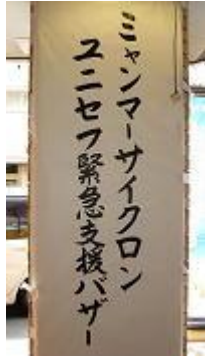 ミャンマーサイクロン
ユニセフ緊急支援バザー